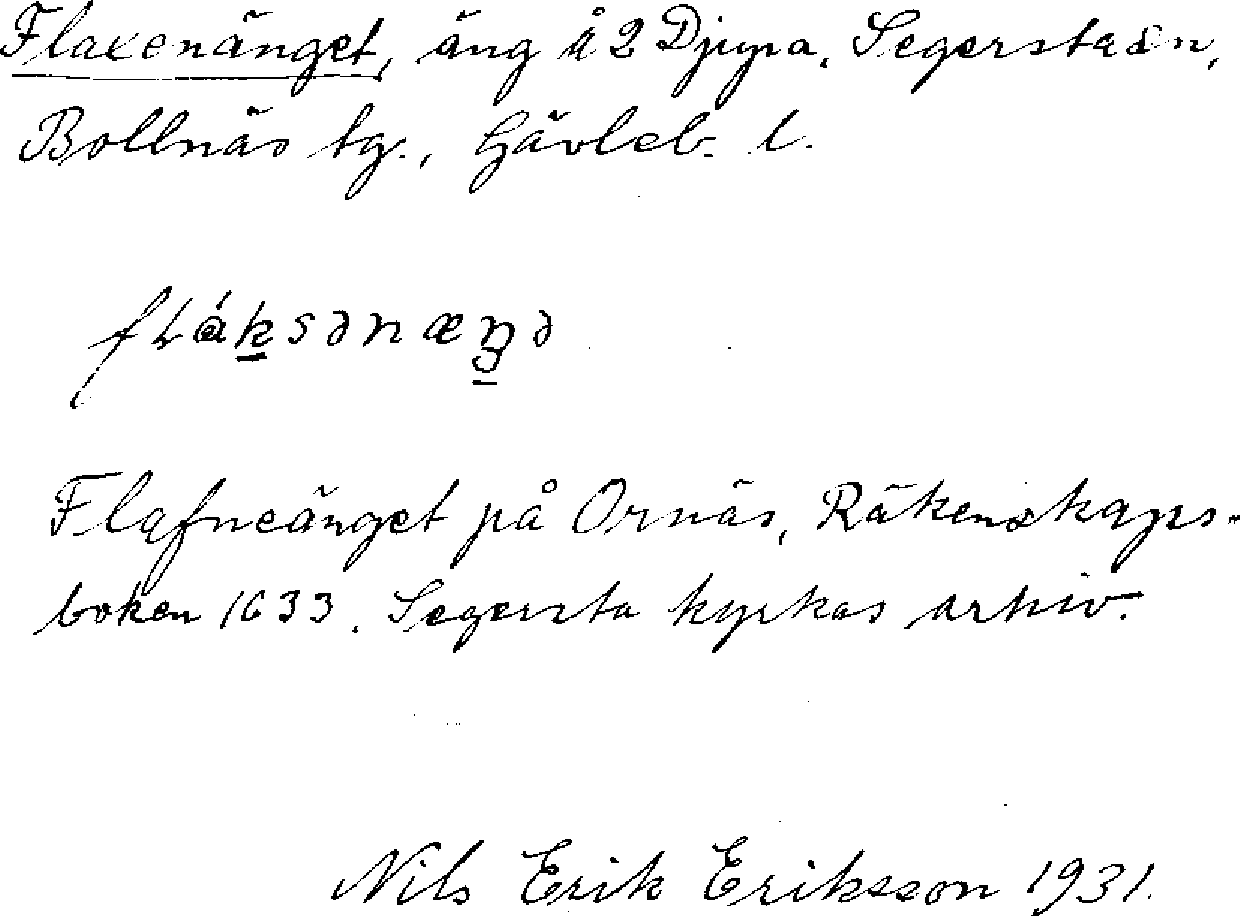 Flaxenänget, äng å 2 Djupa, Segersta sn,
Bollnäs tg., Gävleb. l.
fláksənæŋə
Flafneänget på Ornäs, Räkenskaps-
boken 1633. Segersta kyrkas arkiv.
Nils Erik Eriksson 1931.